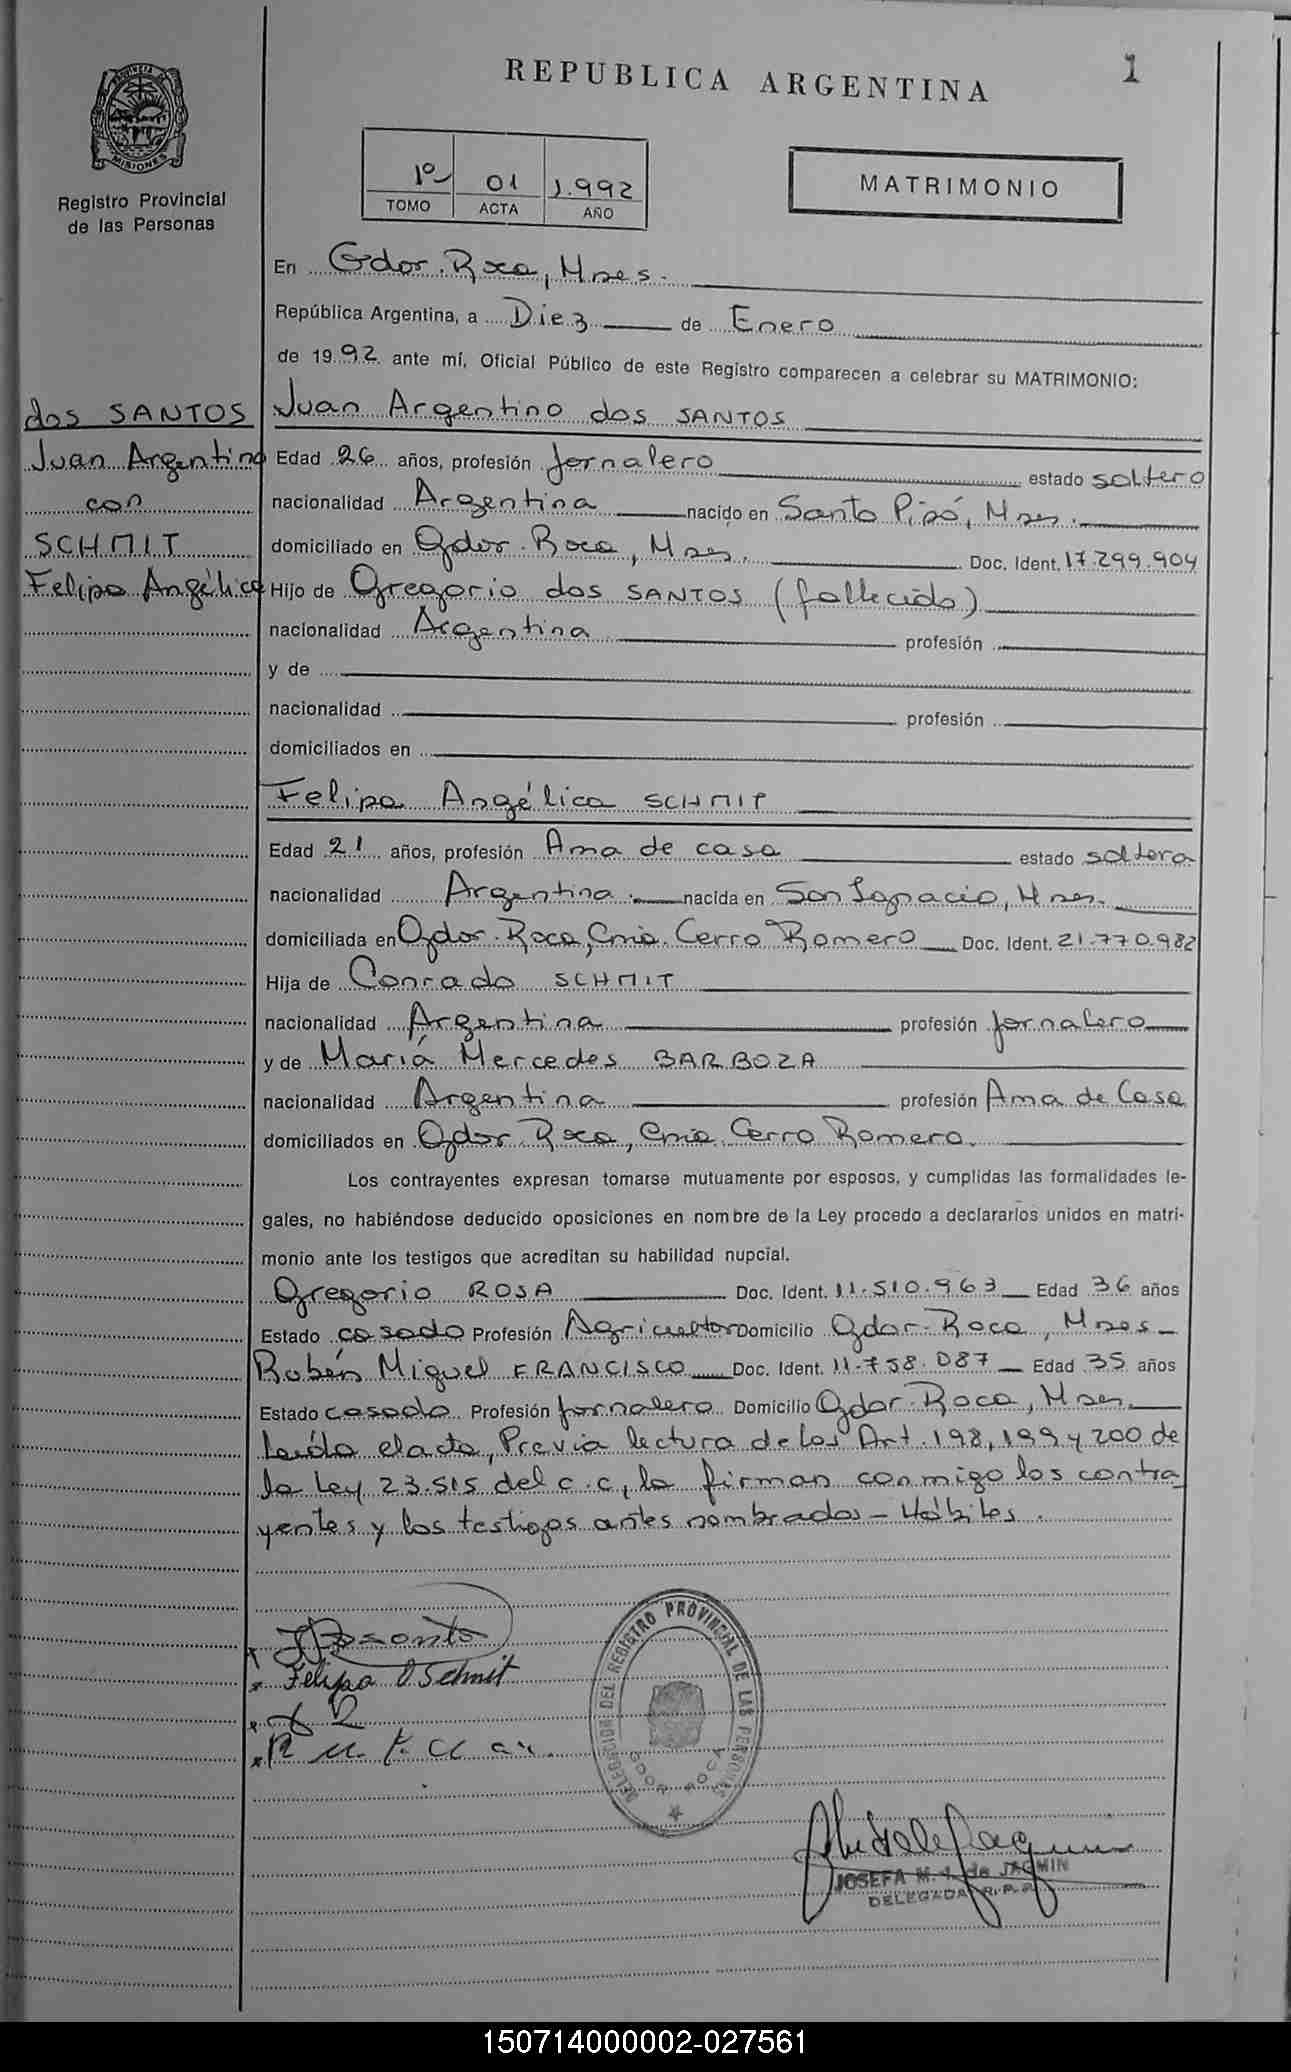 REPUBLICA ARGENTINA
1
PROVINCIA DE MISIONES
Registro Provincial
de las Personas
1º 01 1.992
TOMO ACTA AÑO
MATRIMONIO
En Gdor. Roca, Mnes.
República Argentina, a Diez de Enero
de 1992 ante mí, Oficial Público de este Registro comparecen a celebrar su MATRIMONIO:
dos SANTOS
Juan Argentino
con
SCHMIT
Felipa Angélica
Juan Argentino dos SANTOS
Edad 26 años, profesión Jornalero estado soltero
nacionalidad Argentina nacido en Santo Pipó, Mnes.
domiciliado en Gdor. Roca, Mnes. Doc. Ident. 17.299.904
Hijo de Gregorio dos SANTOS (fallecido)
nacionalidad Argentina profesión
y de
nacionalidad profesión
domiciliados en
Felipa Angélica SCHMIT
Edad 21 años, profesión Ama de casa estado soltera
nacionalidad Argentina. nacida en San Ignacio, Mnes.
domiciliada en Gdor. Roca, Cnia. Cerro Romero Doc. Ident. 21.770.982
Hija de Conrado SCHMIT
nacionalidad Argentina profesión jornalero
y de Mariá Mercedes BARBOZA
nacionalidad Argentina profesión Ama de Casa
domiciliados en Gdor. Roca, Cnia. Cerro Romero.
Los contrayentes expresan tomarse mutuamente por esposos, y cumplidas las formalidades le-
gales, no habiéndose deducido oposiciones en nombre de la Ley procedo a declararlos unidos en matri-
monio ante los testigos que acreditan su habilidad nupcial.
Gregorio ROSA Doc. Ident. 11.510.963 Edad 36 años
Estado casado Profesión Agricultor Domicilio Gdor. Roca, Mnes
Rubén Miguel FRANCISCO Doc. Ident. 11.758.087 Edad 35 años
Estado casado Profesión jornalero Domicilio Gdor. Roca, Mnes.
Leída el acta, Previa lectura de los Art. 198, 199 y 200 de
la Ley 23.515 del c.c, la firman conmigo los contra
yentes y los testigos antes nombrados - Hábiles.
Felipa A Schmit
DELEGACION DEL REGISTRO PROVINCIAL DE LAS PERSONAS
GDOR. ROCA
JOSEFA M. de JACMIN
DELEGADA R.P.P.
150714000002-027561